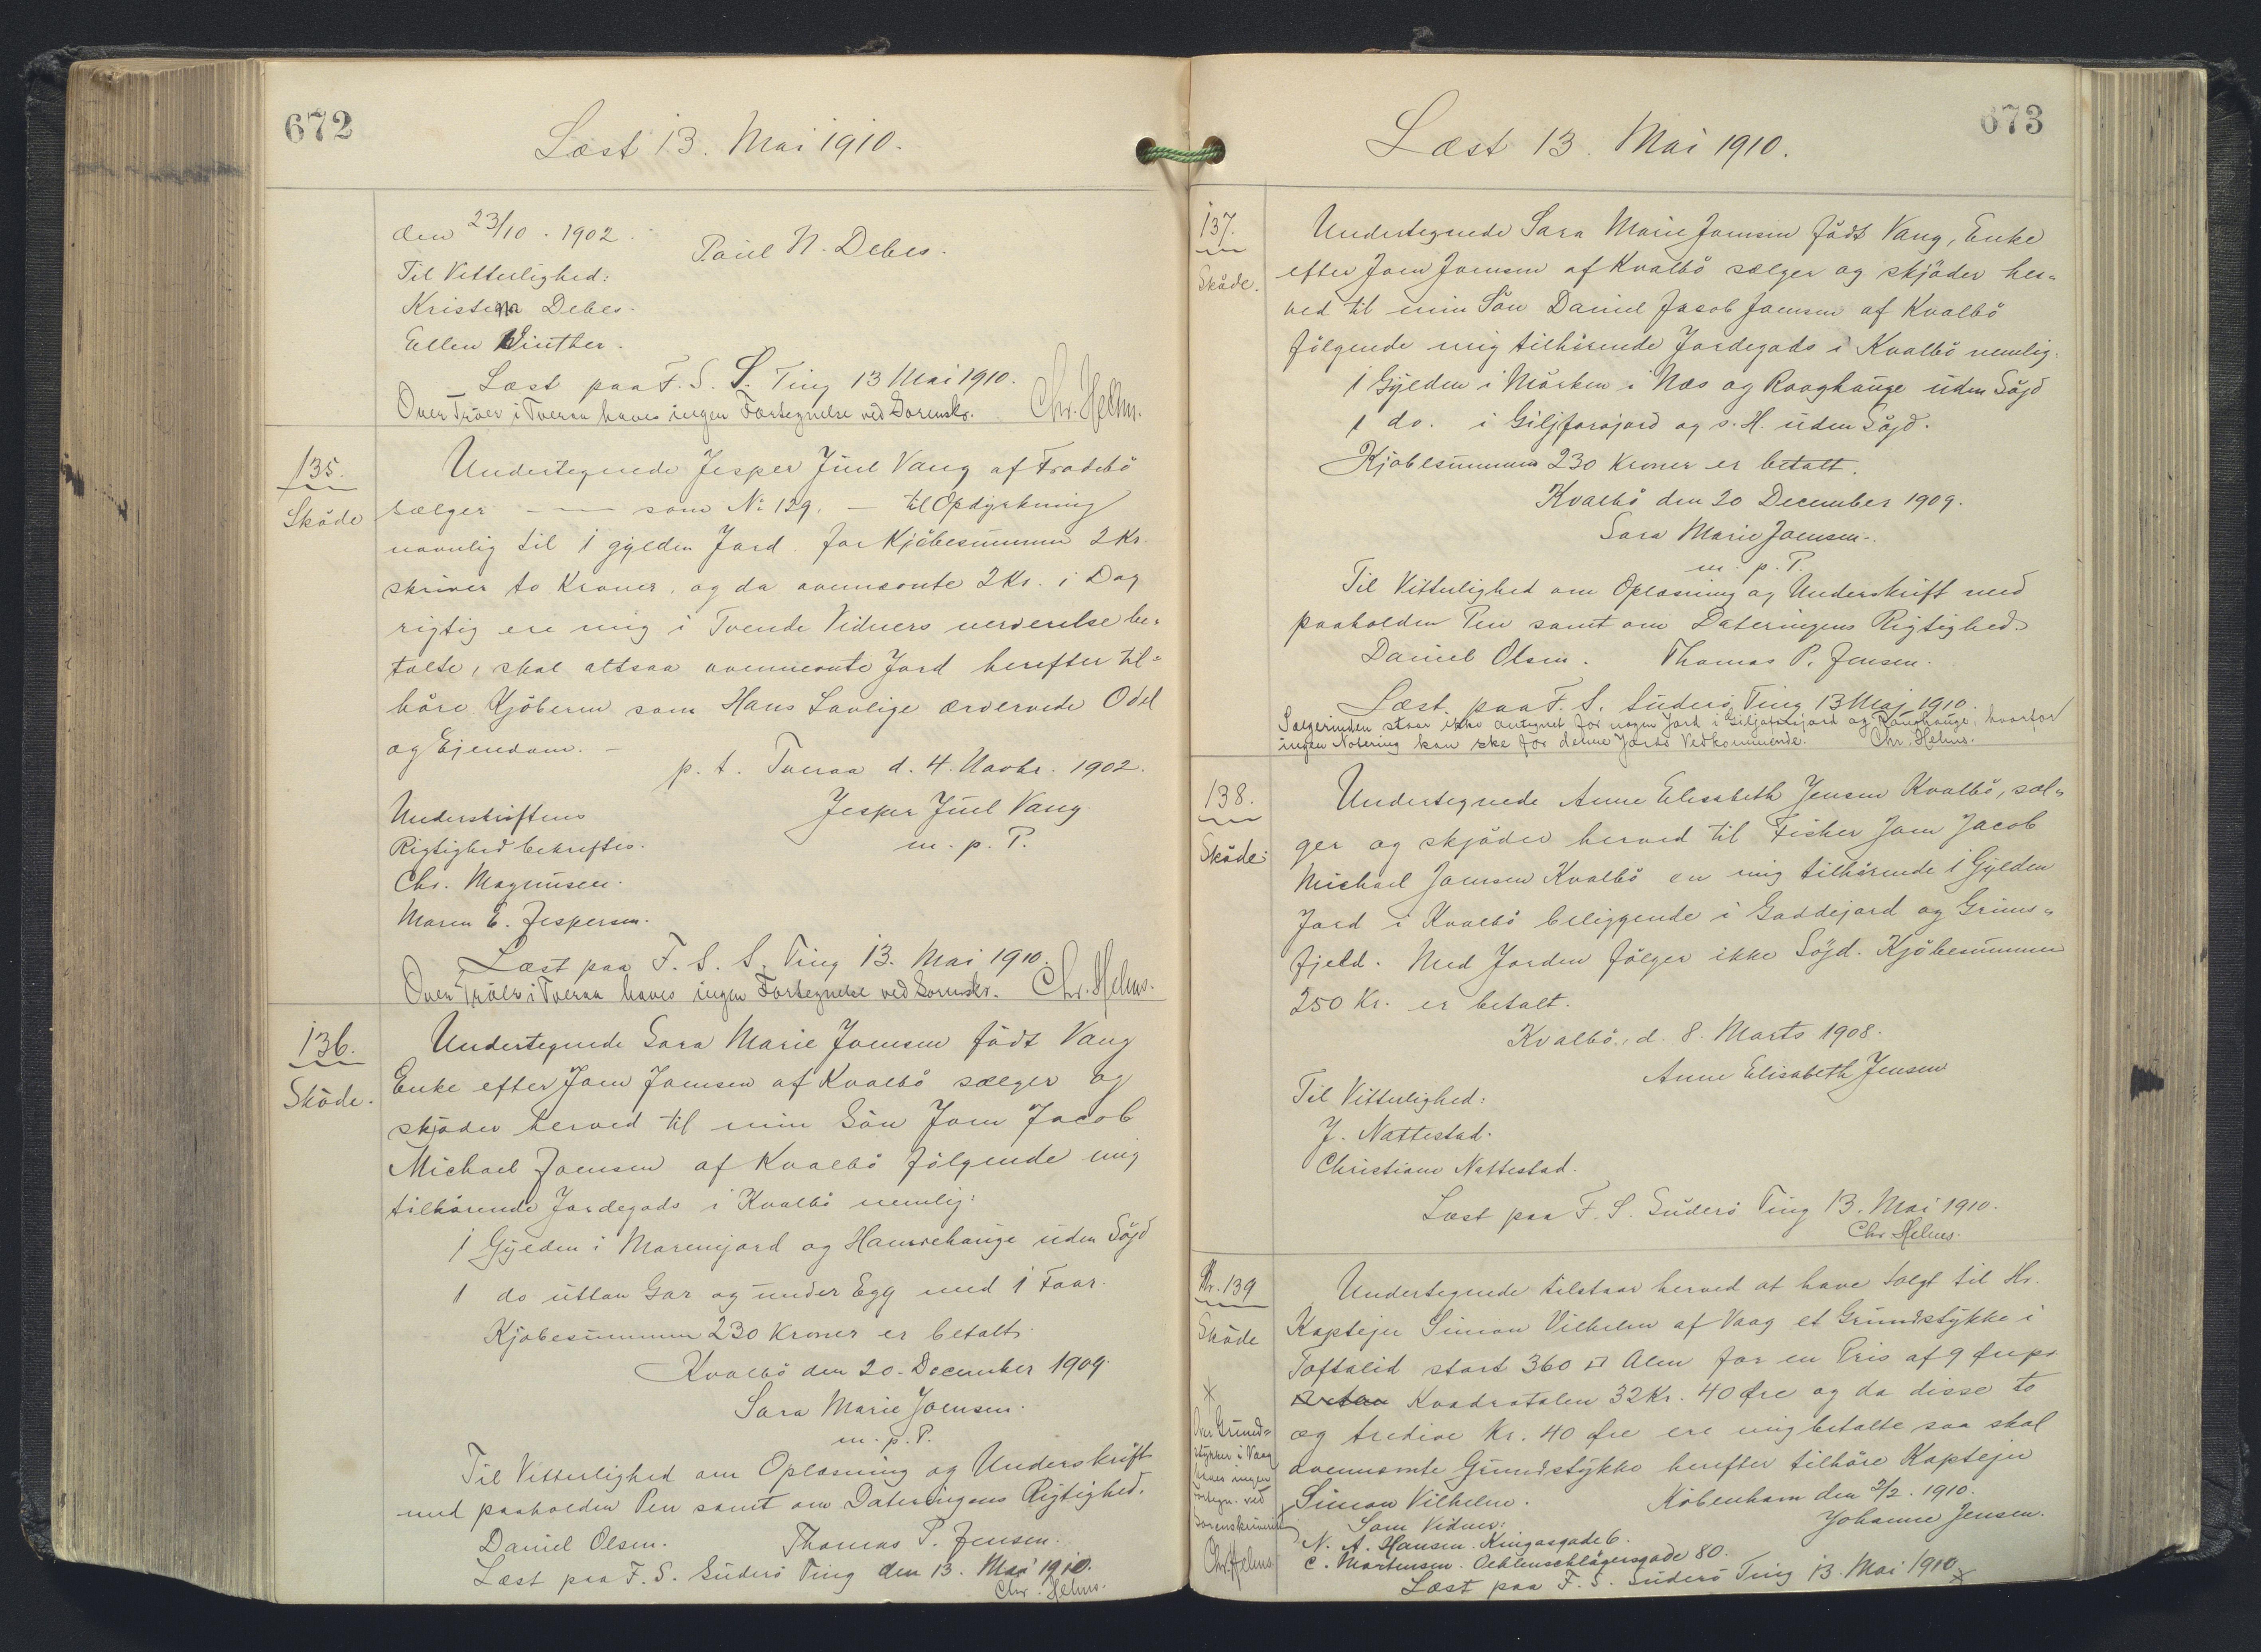 672
Læst 13. Mai 1910.
den 23/10. 1902.
Paul N. Debes.
Til Vitterlighed:
Kristena Debes.
Ellen Winther.
Læst paa F. S. S. Ting 13 Mai 1910.
Over Tröer i Tveraa haves ingen Fortegnelse ved Sorenskr. Chr. Helms.
135.
Sköde
Undertegnede Jesper Juul Vang af Frodebö
sælger — — som No 129. — til Opdyrkning
navnlig til 1 gylden Jord for Kjöbesummen 2 Kr.
skriver to Kroner, og da ovennævnte 2 Kr. i Dag
rigtig ere mig i Tvende Vidners nærværelse be-
talte, skal altsaa ovennævnte Jord herefter til-
höre Kjöberen som Hans Lovlige ærvervede Odel
og Ejendom. —
p. t. Tveraa d. 4. Novbr. 1902.
Underskriftens
Jesper Juul Vang
Rigtighed bekræftes.
m. p. P.
Chr. Magnusen.
Maren E. Jespersen.
Læst paa F. S. S. Ting 13. Mai 1910.
Over Tröer i Tveraa haves ingen Fortegnelse ved Sorenskr. Chr. Helms.
136.
Sköde.
Undertegnede Sara Marie Joensen födt Vang
Enke efter Joen Joensen af Kvalbö sælger og
skjöder herved til min Sön Joen Jacob
Michael Joensen af Kvalbö fölgende mig
tilhörende Jordegods i Kvalbö nemlig:
1 Gylden i Marenjord og Hamrehauge uden Söjd
1 do uttan Gar og under Egg med 1 Faar.
Kjöbesummen 230 Kroner er betalt.
Kvalbö den 20. December 1909.
Sara Marie Joensen.
m. p. P.
Til Vitterlighed om Oplæsning og Underskrift
med paaholden Pen samt om Dateringens Rigtighed.
Daniel Olsen. Thomas P. Jensen.
Læst paa F. S. Suderö Ting den 13. Mai 1910.
Chr. Helms.
673
Læst 13. Mai 1910.
137.
Sköde.
Undertegnede Sara Marie Joensen födt Vang, Enke
efter Joen Joensen af Kvalbö sælger og skjöder her-
ved til min Sön Daniel Jacob Joensen af Kvalbö
fölgende mig tilhörende Jordegods i Kvalbö nemlig:
1 Gylden i Mörken i Næs og Raaghauge uden Söjd
1 do. i Giljforajord og s. H. uden Söjd.
Kjöbesummen 230 Kroner er betalt.
Kvalbö den 20 December 1909.
Sara Marie Joensen.
m. p. P.
Til Vitterlighed om Oplæsning og Underskrift med
paaholden Pen samt om Dateringens Rigtighed
Daniel Olsen. Thomas P. Jensen.
Læst paa F. S. Suderö Ting 13 Maj 1910.
Sælgerinden staar ikke antegnet for nogen Jord i Giljaforajord og Raaghauge, hvorfor
ingen Notering kan ske for denne Jords Vedkommende. Chr. Helms.
138.
Sköde:
Undertegnede Anne Elisabeth Jensen Kvalbö, sæl-
ger og skjöder herved til Fisker Joen Jacob
Michael Joensen Kvalbö en mig tilhörende 1 Gylden
Jord i Kvalbö beliggende i Gaddejord og Grims-
fjeld. Med Jorden fölger ikke Söjd. Kjöbesummen
250 Kr. er betalt.
Kvalbö, d. 8. Marts 1908.
Anne Elisabeth Jensen
Til Vitterlighed:
J. Nattestad.
Christiane Nattestad.
Læst paa F. S. Suderö Ting 13. Mai 1910.
Chr. Helms.
Nr. 139
Sköde
Undertegnede tilstaar herved at have solgt til Hr.
Kaptejn Simon Vilhelm af Vaag et Grundstykke i
Toftalid stort 360 □ Alen for en Pris af 9 Øre pr
Kvadratalen 32 Kr. 40 Øre og da disse to
og tredive Kr. 40 Øre ere mig betalte saa skal
ovennævnte Grundstykke herefter tilhöre Kaptejn
Simon Vilhelm. Köbenhavn den 2/2. 1910.
Som Vidner: Johanne Jensen.
N. A. Hansen. Kingosgade 6.
C. Mortensen. Oehlenschlägersgade 80.
Læst paa F. S. Suderö Ting 13. Mai 1910 x
x
Over Grund-
stykker i Vaag
haves ingen
Fortegn. ved
Sorenskriveriet
Chr. Helms